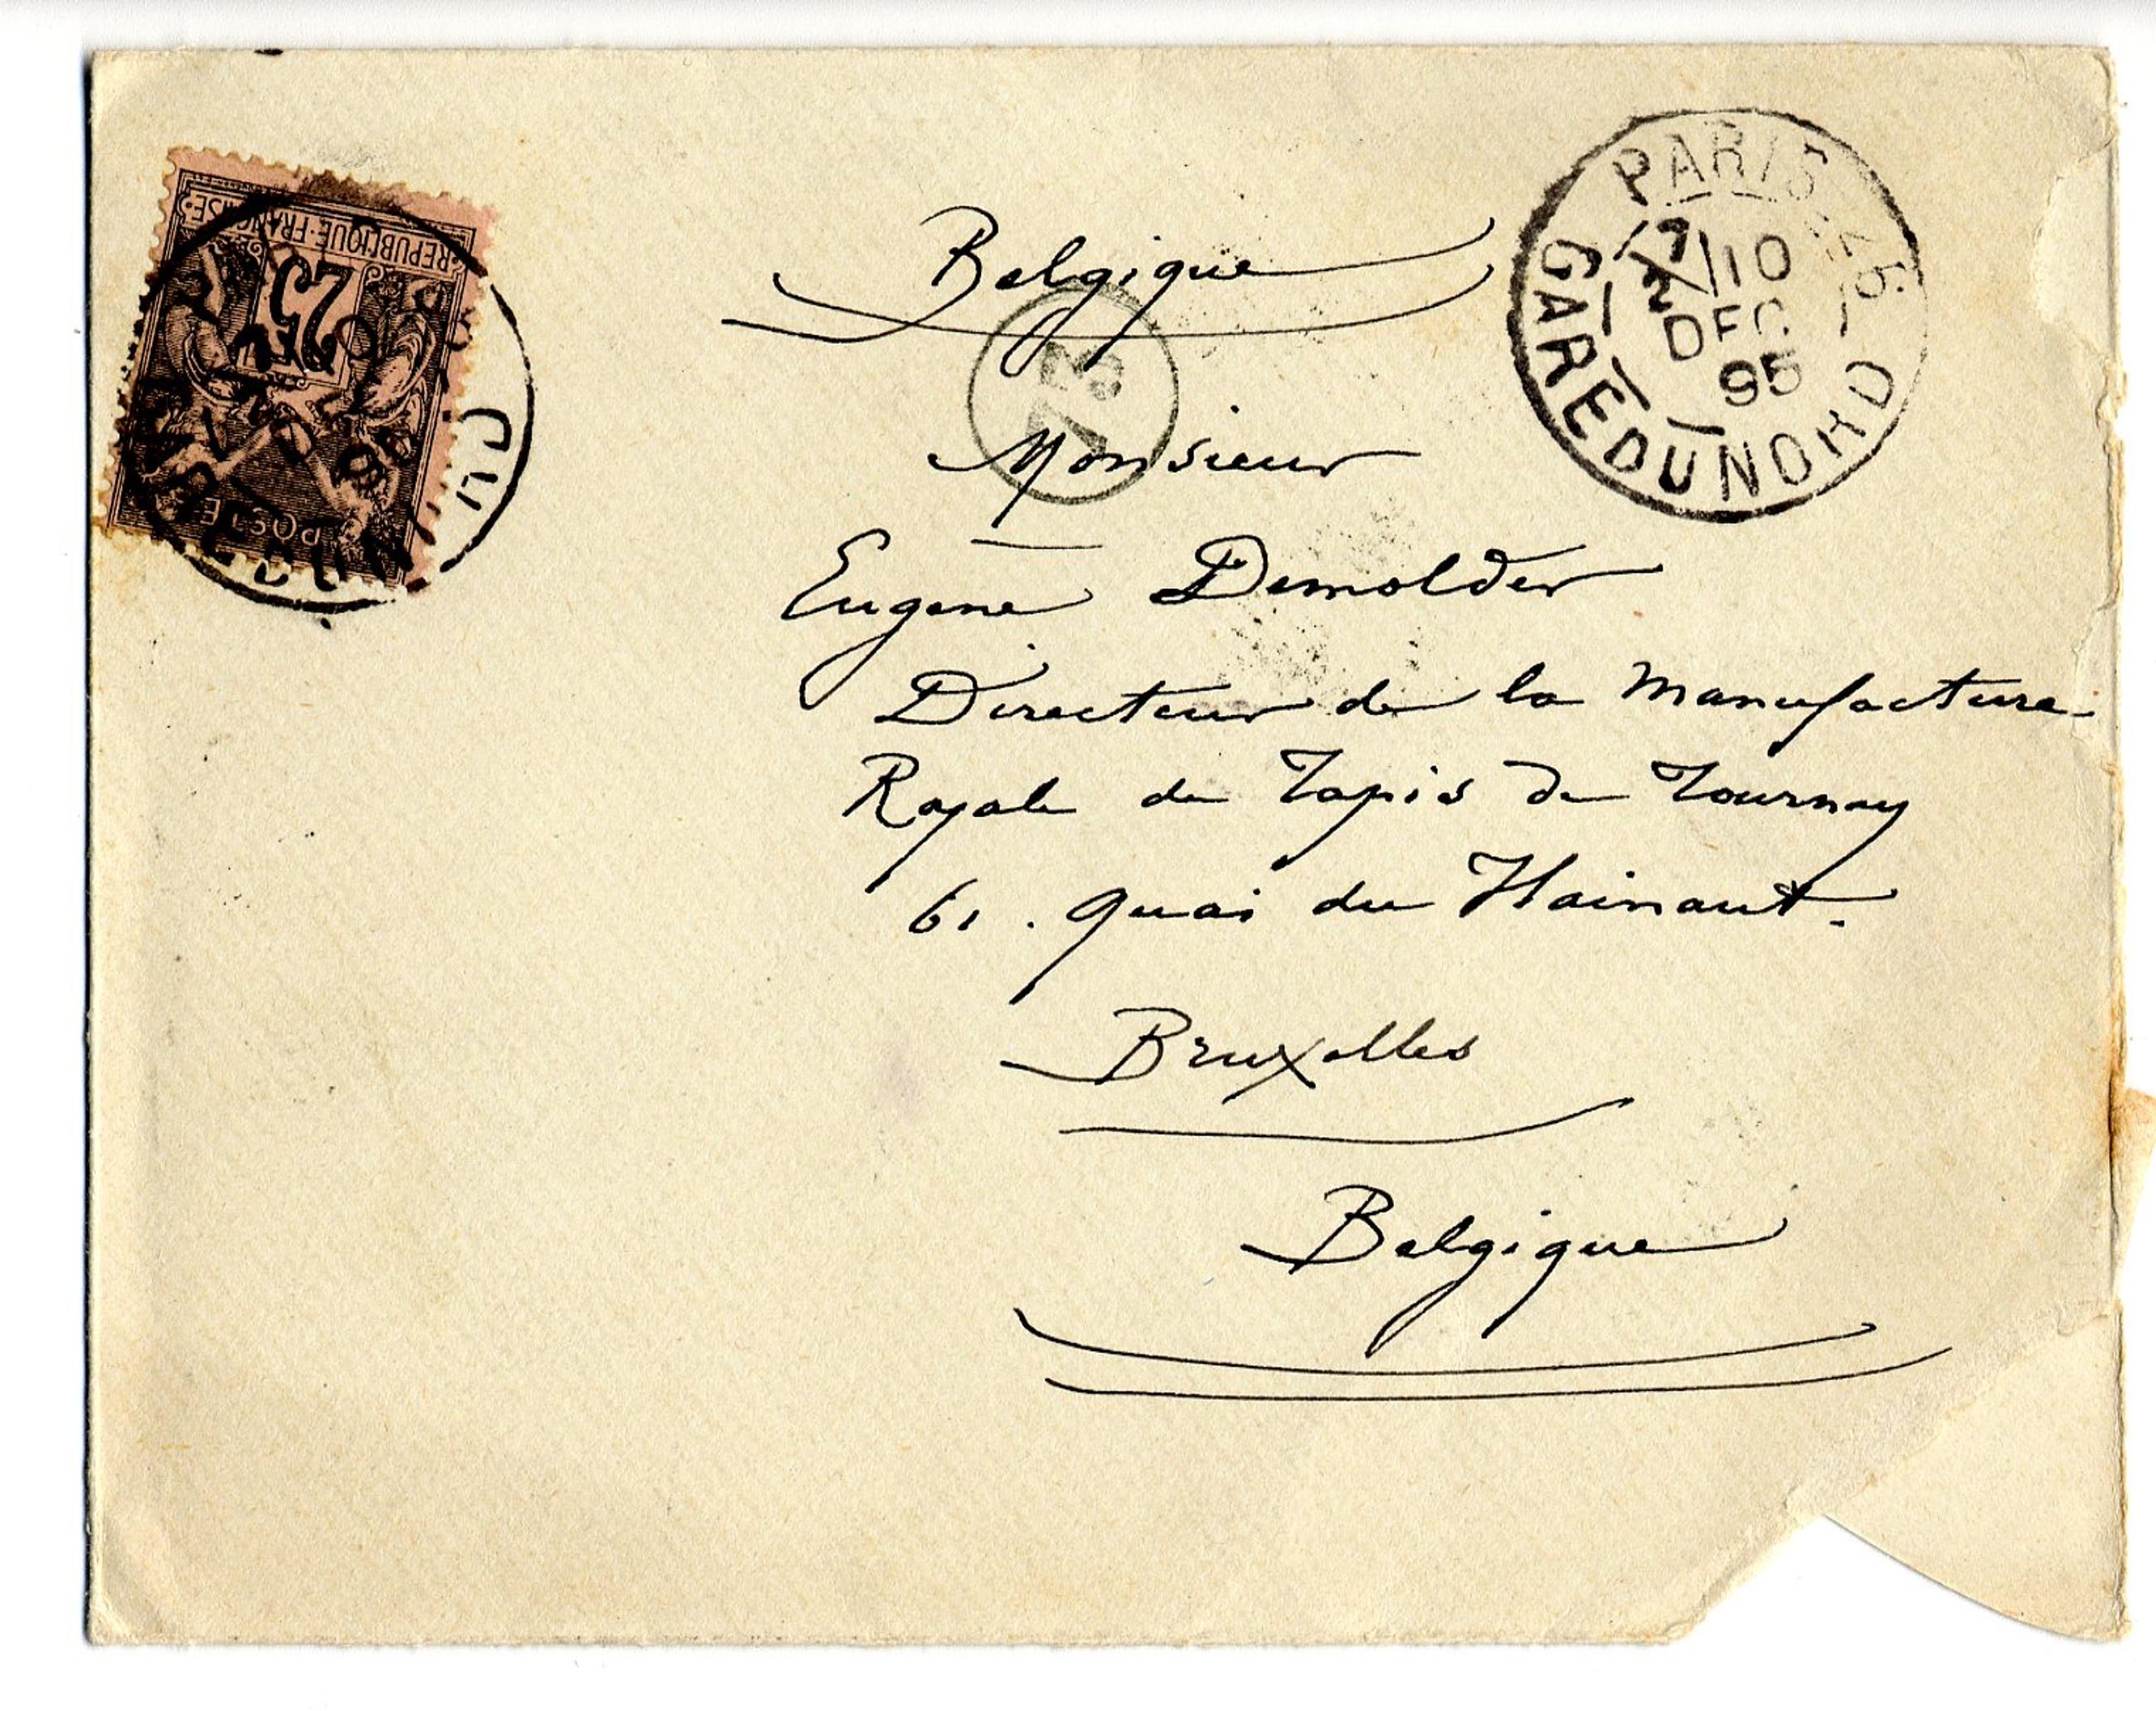 REPUBLIQUE·FRANÇAISE
25
POSTE
PARIS 25
10
DEC
95
GARE DU NORD
Belgique
Monsieur
Eugene Demolder
Directeur de la Manufacture
Royale de Tapis de Tournay
61. Quai du Hainaut.
Bruxelles
Belgique